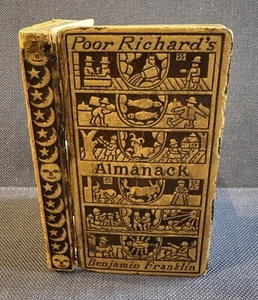 Poor Richard's
Almanack
Benjamin Franklin